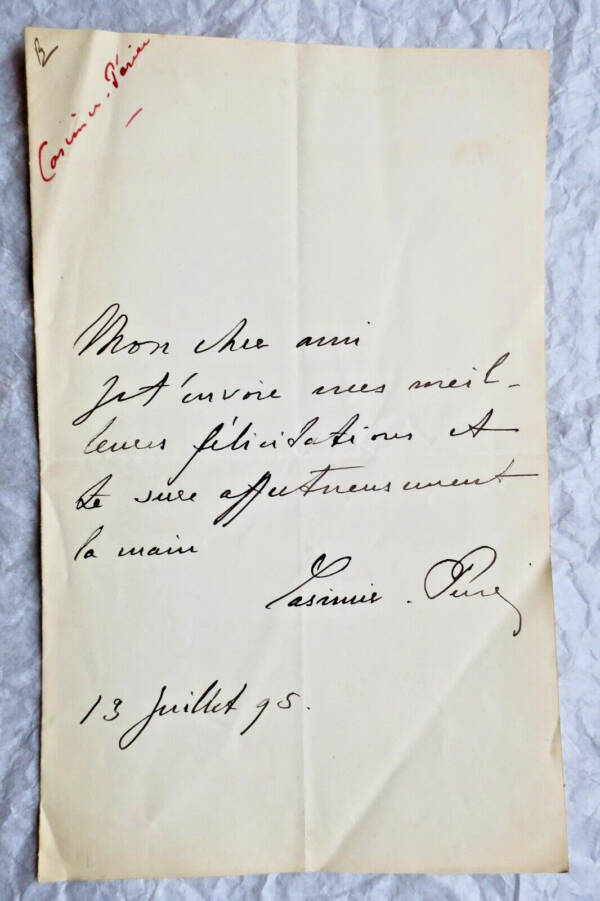 B
Casimir-Périer
Mon cher ami
Je t'envoie mes meil-
leures félicitations et
te serre affectueusement
la main
Casimir-Périer
13 Juillet 95.